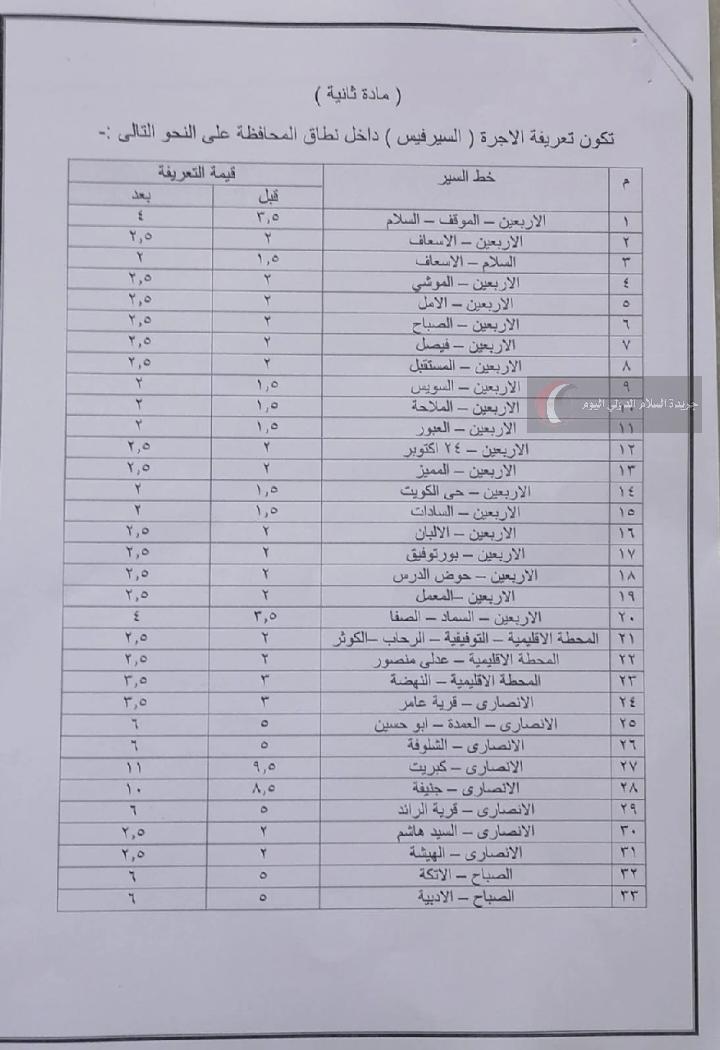 ( مادة ثانية )
تكون تعريفة الاجرة ( السيرفيس ) داخل نطاق المحافظة على النحو التالى :-
م خط السير قيمة التعريفة
قبل بعد
١ الاربعين – الموقف – السلام ٣,٥ ٤
٢ الاربعين – الاسعاف ٢ ٢,٥
٣ السلام – الاسعاف ١,٥ ٢
٤ الاربعين – الموشي ٢ ٢,٥
٥ الاربعين – الامل ٢ ٢,٥
٦ الاربعين – الصباح ٢ ٢,٥
٧ الاربعين – فيصل ٢ ٢,٥
٨ الاربعين – المستقبل ٢ ٢,٥
٩ الاربعين – السويس ١,٥ ٢
جريدة السلام الدولي اليوم
١٠ الاربعين – الملاحة ١,٥ ٢
١١ الاربعين – العبور ١,٥ ٢
١٢ الاربعين – ٢٤ اكتوبر ٢ ٢,٥
١٣ الاربعين – المميز ٢ ٢,٥
١٤ الاربعين – حى الكويت ١,٥ ٢
١٥ الاربعين – السادات ١,٥ ٢
١٦ الاربعين – الالبان ٢ ٢,٥
١٧ الاربعين – بورتوفيق ٢ ٢,٥
١٨ الاربعين – حوض الدرس ٢ ٢,٥
١٩ الاربعين –المعمل ٢ ٢,٥
٢٠ الاربعين – السماد – الصفا ٣,٥ ٤
٢١ المحطة الاقليمية – التوفيقية – الرحاب –الكوثر ٢ ٢,٥
٢٢ المحطة الاقليمية – عدلى منصور ٢ ٢,٥
٢٣ المحطة الاقليمية – النهضة ٣ ٣,٥
٢٤ الانصارى – قرية عامر ٣ ٣,٥
٢٥ الانصارى – العمدة – ابو حسين ٥ ٦
٢٦ الانصارى – الشلوفة ٥ ٦
٢٧ الانصارى – كبريت ٩,٥ ١١
٢٨ الانصارى – جنيفة ٨,٥ ١٠
٢٩ الانصارى – قرية الرائد ٥ ٦
٣٠ الانصارى – السيد هاشم ٢ ٢,٥
٣١ الانصارى – الهيشة ٢ ٢,٥
٣٢ الصباح – الاتكة ٥ ٦
٣٣ الصباح – الادبية ٥ ٦